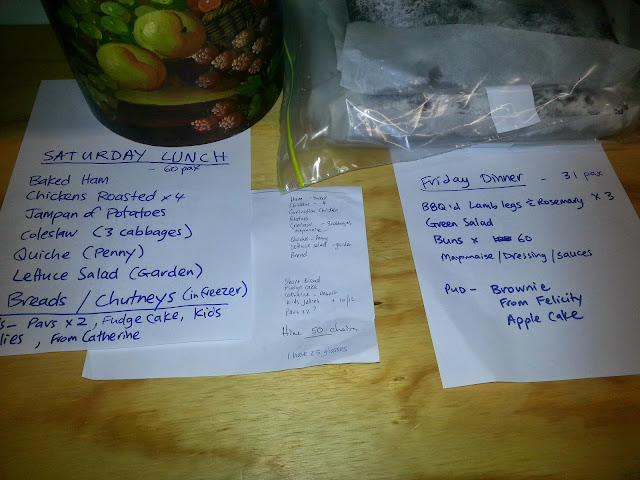 SATURDAY LUNCH
- 60 pax
Baked Ham
Chickens Roasted x 4
Jampan of Potatoes
Coleslaw (3 cabbages)
Quiche (Penny)
Lettuce Salad (Garden)
Breads / Chutneys (in freezer)
- Pavs x 2, Fudge Cake, Kids
, From Catherine
Ham
Chicken - 4
Coronation Chicken
- 3 cabbages
mayonaise
Quiche - Penny
Lettuce salad - garden
Bread
Short Bread
Fudge cake
Kids jellies x 10/12
Pavs x 2
Hire 50 chairs
I have 25 glasses
Friday Dinner - 31 pax
BBQ'd Lamb legs & Rosemary x 3
Green Salad
Buns x 60
Mayonaise / Dressing / sauces
PUD - Brownie
From Felicity
Apple Cake